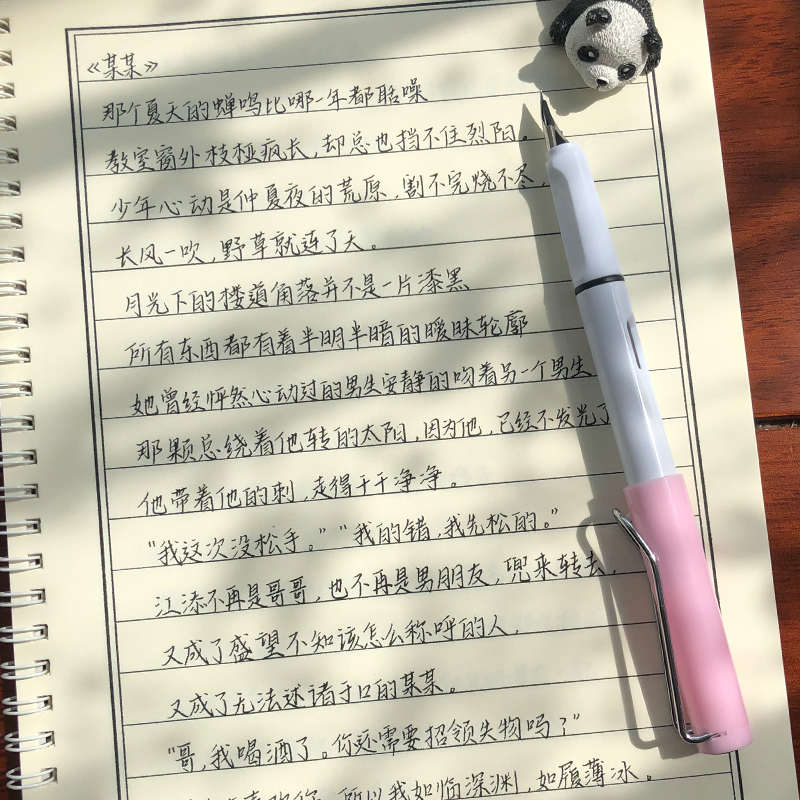 《某某》
那个夏天的蝉鸣比哪一年都聒噪
教室窗外枝桠疯长，却总也挡不住烈阳。
少年心动是仲夏夜的荒原，割不完烧不尽，
长风一吹，野草就连了天。
月光下的楼道角落并不是一片漆黑
所有东西都有着半明半暗的暧昧轮廓
她曾经怦然心动过的男生安静的吻着另一个男生
那颗总绕着他转的太阳，因为他，已经不发光了
他带着他的刺，走得干干净净。
“我这次没松手。”“我的错，我先松的。”
江添不再是哥哥，也不再是男朋友，兜来转去，
又成了盛望不知该怎么称呼的人，
又成了无法述诸于口的某某。
“哥，我喝酒了。你还需要招领失物吗？”
喜欢你，所以我如临深渊，如履薄冰。